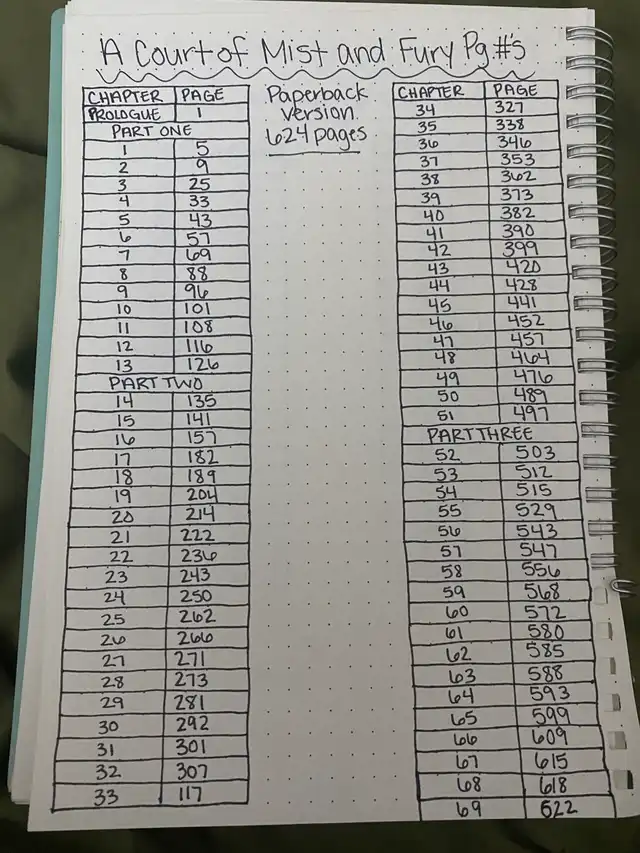 A Court of Mist and Fury Pg.#'s
CHAPTER PAGE
PROLOGUE 1
PART ONE
1 5
2 9
3 25
4 33
5 43
6 57
7 69
8 88
9 96
10 101
11 108
12 116
13 126
PART TWO
14 135
15 141
16 157
17 182
18 189
19 204
20 214
21 222
22 236
23 243
24 250
25 262
26 266
27 271
28 273
29 281
30 292
31 301
32 307
33 117
Paperback
version
624 pages
CHAPTER PAGE
34 327
35 338
36 346
37 353
38 362
39 373
40 382
41 390
42 399
43 420
44 428
45 441
46 452
47 457
48 464
49 476
50 489
51 497
PART THREE
52 503
53 512
54 515
55 529
56 543
57 547
58 556
59 568
60 572
61 580
62 585
63 588
64 593
65 599
66 609
67 615
68 618
69 622